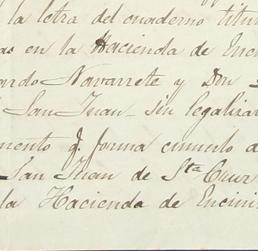 la letra del cuaderno titu
as en la Hacienda de Enci
ardo Navarrete y Don
San Juan - sin legalizar
mento q. forma cumulo a
San Juan de Sta Cruz
la Hacienda de Encini